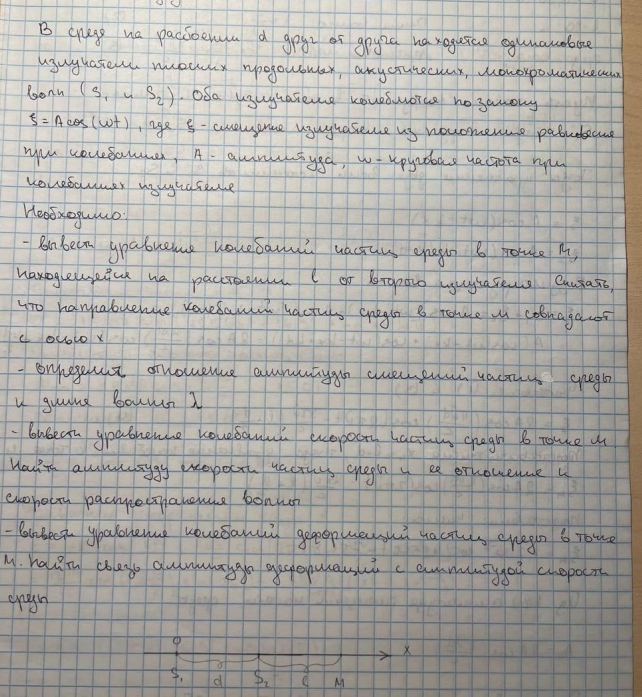 В среде на расстоении d друг от друга находятся одинаковые
излучатели плоских продольных, акустических, монохроматических
волн (S₁ и S₂). Оба излучателя колеблются по закону
ξ = A cos(ωt), где ξ - смещение излучателя из положения равновесия
при колебаниях, A - амплитуда, ω - круговая частота при
колебаниях излучателя
Необходимо:
- вывести уравнение колебаний частиц среды в точке M,
находящейся на расстоянии l от второго излучателя. Считать,
что направление колебаний частиц среды в точке M совпадают
с осью x
- определить отношение амплитуды смещений частиц среды
к длине волны λ
- вывести уравнение колебаний скорости частиц среды в точке M.
Найти амплитуду скорости частиц среды и ее отношение к
скорости распространения волны
- вывести уравнение колебаний деформаций частиц среды в точке
M. Найти связь амплитуды деформаций с амплитудой скорости
среды
0
x
S₁ d S₂ l M